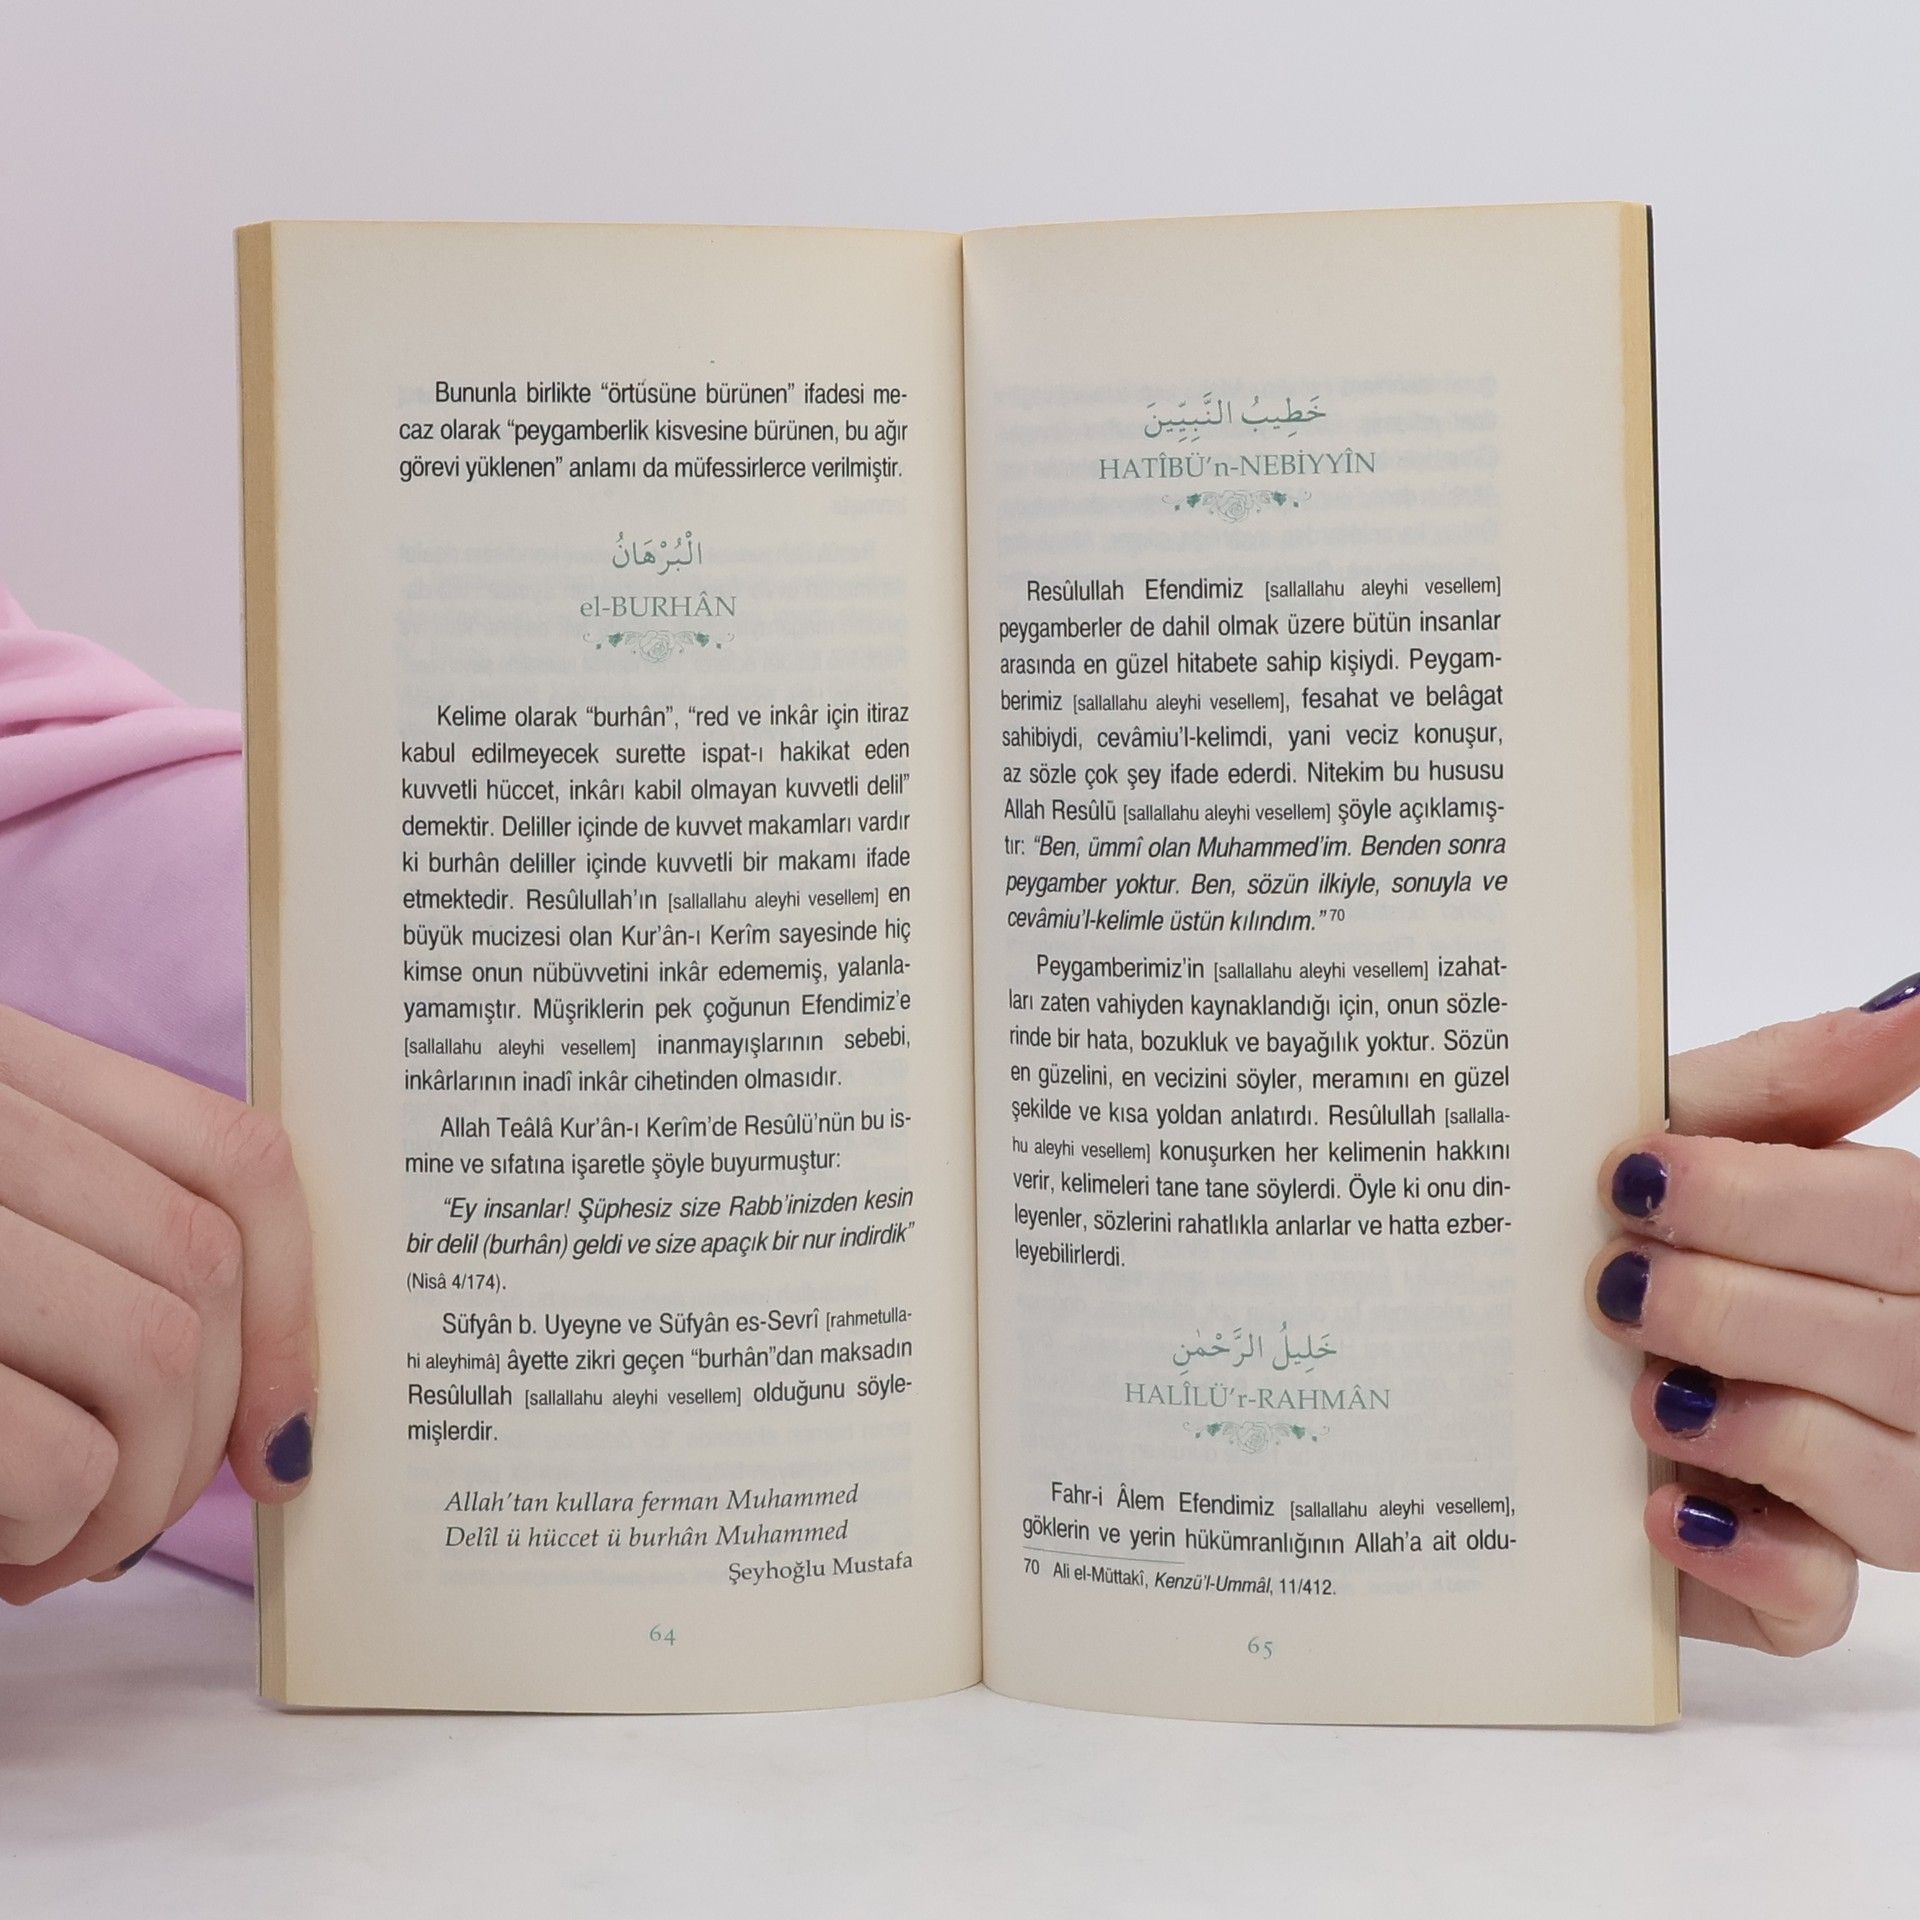 Bununla birlikte “örtüsüne bürünen” ifadesi me-
caz olarak “peygamberlik kisvesine bürünen, bu ağır
görevi yüklenen” anlamı da müfessirlerce verilmiştir.
الْبُرْهَانُ
el-BURHÂN
Kelime olarak “burhân”, “red ve inkâr için itiraz
kabul edilmeyecek surette ispat-ı hakikat eden
kuvvetli hüccet, inkârı kabil olmayan kuvvetli delil”
demektir. Deliller içinde de kuvvet makamları vardır
ki burhân deliller içinde kuvvetli bir makamı ifade
etmektedir. Resûlullah’ın [sallallahu aleyhi vesellem] en
büyük mucizesi olan Kur’ân-ı Kerîm sayesinde hiç
kimse onun nübüvvetini inkâr edememiş, yalanla-
yamamıştır. Müşriklerin pek çoğunun Efendimiz’e
[sallallahu aleyhi vesellem] inanmayışlarının sebebi,
inkârlarının inadî inkâr cihetinden olmasıdır.
Allah Teâlâ Kur’ân-ı Kerîm’de Resûlü’nün bu is-
mine ve sıfatına işaretle şöyle buyurmuştur:
“Ey insanlar! Şüphesiz size Rabb’inizden kesin
bir delil (burhân) geldi ve size apaçık bir nur indirdik”
(Nisâ 4/174).
Süfyân b. Uyeyne ve Süfyân es-Sevrî [rahmetulla-
hi aleyhimâ] âyette zikri geçen “burhân”dan maksadın
Resûlullah [sallallahu aleyhi vesellem] olduğunu söyle-
mişlerdir.
Allah’tan kullara ferman Muhammed
Delîl ü hüccet ü burhân Muhammed
Şeyhoğlu Mustafa
64
خَطِيبُ النَّبِيِّينَ
HATÎBÜ’n-NEBİYYÎN
Resûlullah Efendimiz [sallallahu aleyhi vesellem]
peygamberler de dahil olmak üzere bütün insanlar
arasında en güzel hitabete sahip kişiydi. Peygam-
berimiz [sallallahu aleyhi vesellem], fesahat ve belâgat
sahibiydi, cevâmiu’l-kelimdi, yani veciz konuşur,
az sözle çok şey ifade ederdi. Nitekim bu hususu
Allah Resûlü [sallallahu aleyhi vesellem] şöyle açıklamış-
tır: “Ben, ümmî olan Muhammed’im. Benden sonra
peygamber yoktur. Ben, sözün ilkiyle, sonuyla ve
cevâmiu’l-kelimle üstün kılındım.”70
Peygamberimiz’in [sallallahu aleyhi vesellem] izahat-
ları zaten vahiyden kaynaklandığı için, onun sözle-
rinde bir hata, bozukluk ve bayağılık yoktur. Sözün
en güzelini, en vecizini söyler, meramını en güzel
şekilde ve kısa yoldan anlatırdı. Resûlullah [sallalla-
hu aleyhi vesellem] konuşurken her kelimenin hakkını
verir, kelimeleri tane tane söylerdi. Öyle ki onu din-
leyenler, sözlerini rahatlıkla anlarlar ve hatta ezber-
leyebilirlerdi.
خَلِيلُ الرَّحْمٰنِ
HALÎLÜ’r-RAHMÂN
Fahr-i Âlem Efendimiz [sallallahu aleyhi vesellem],
göklerin ve yerin hükümranlığının Allah’a ait oldu-
70 Ali el-Müttakî, Kenzü’l-Ummâl, 11/412.
65